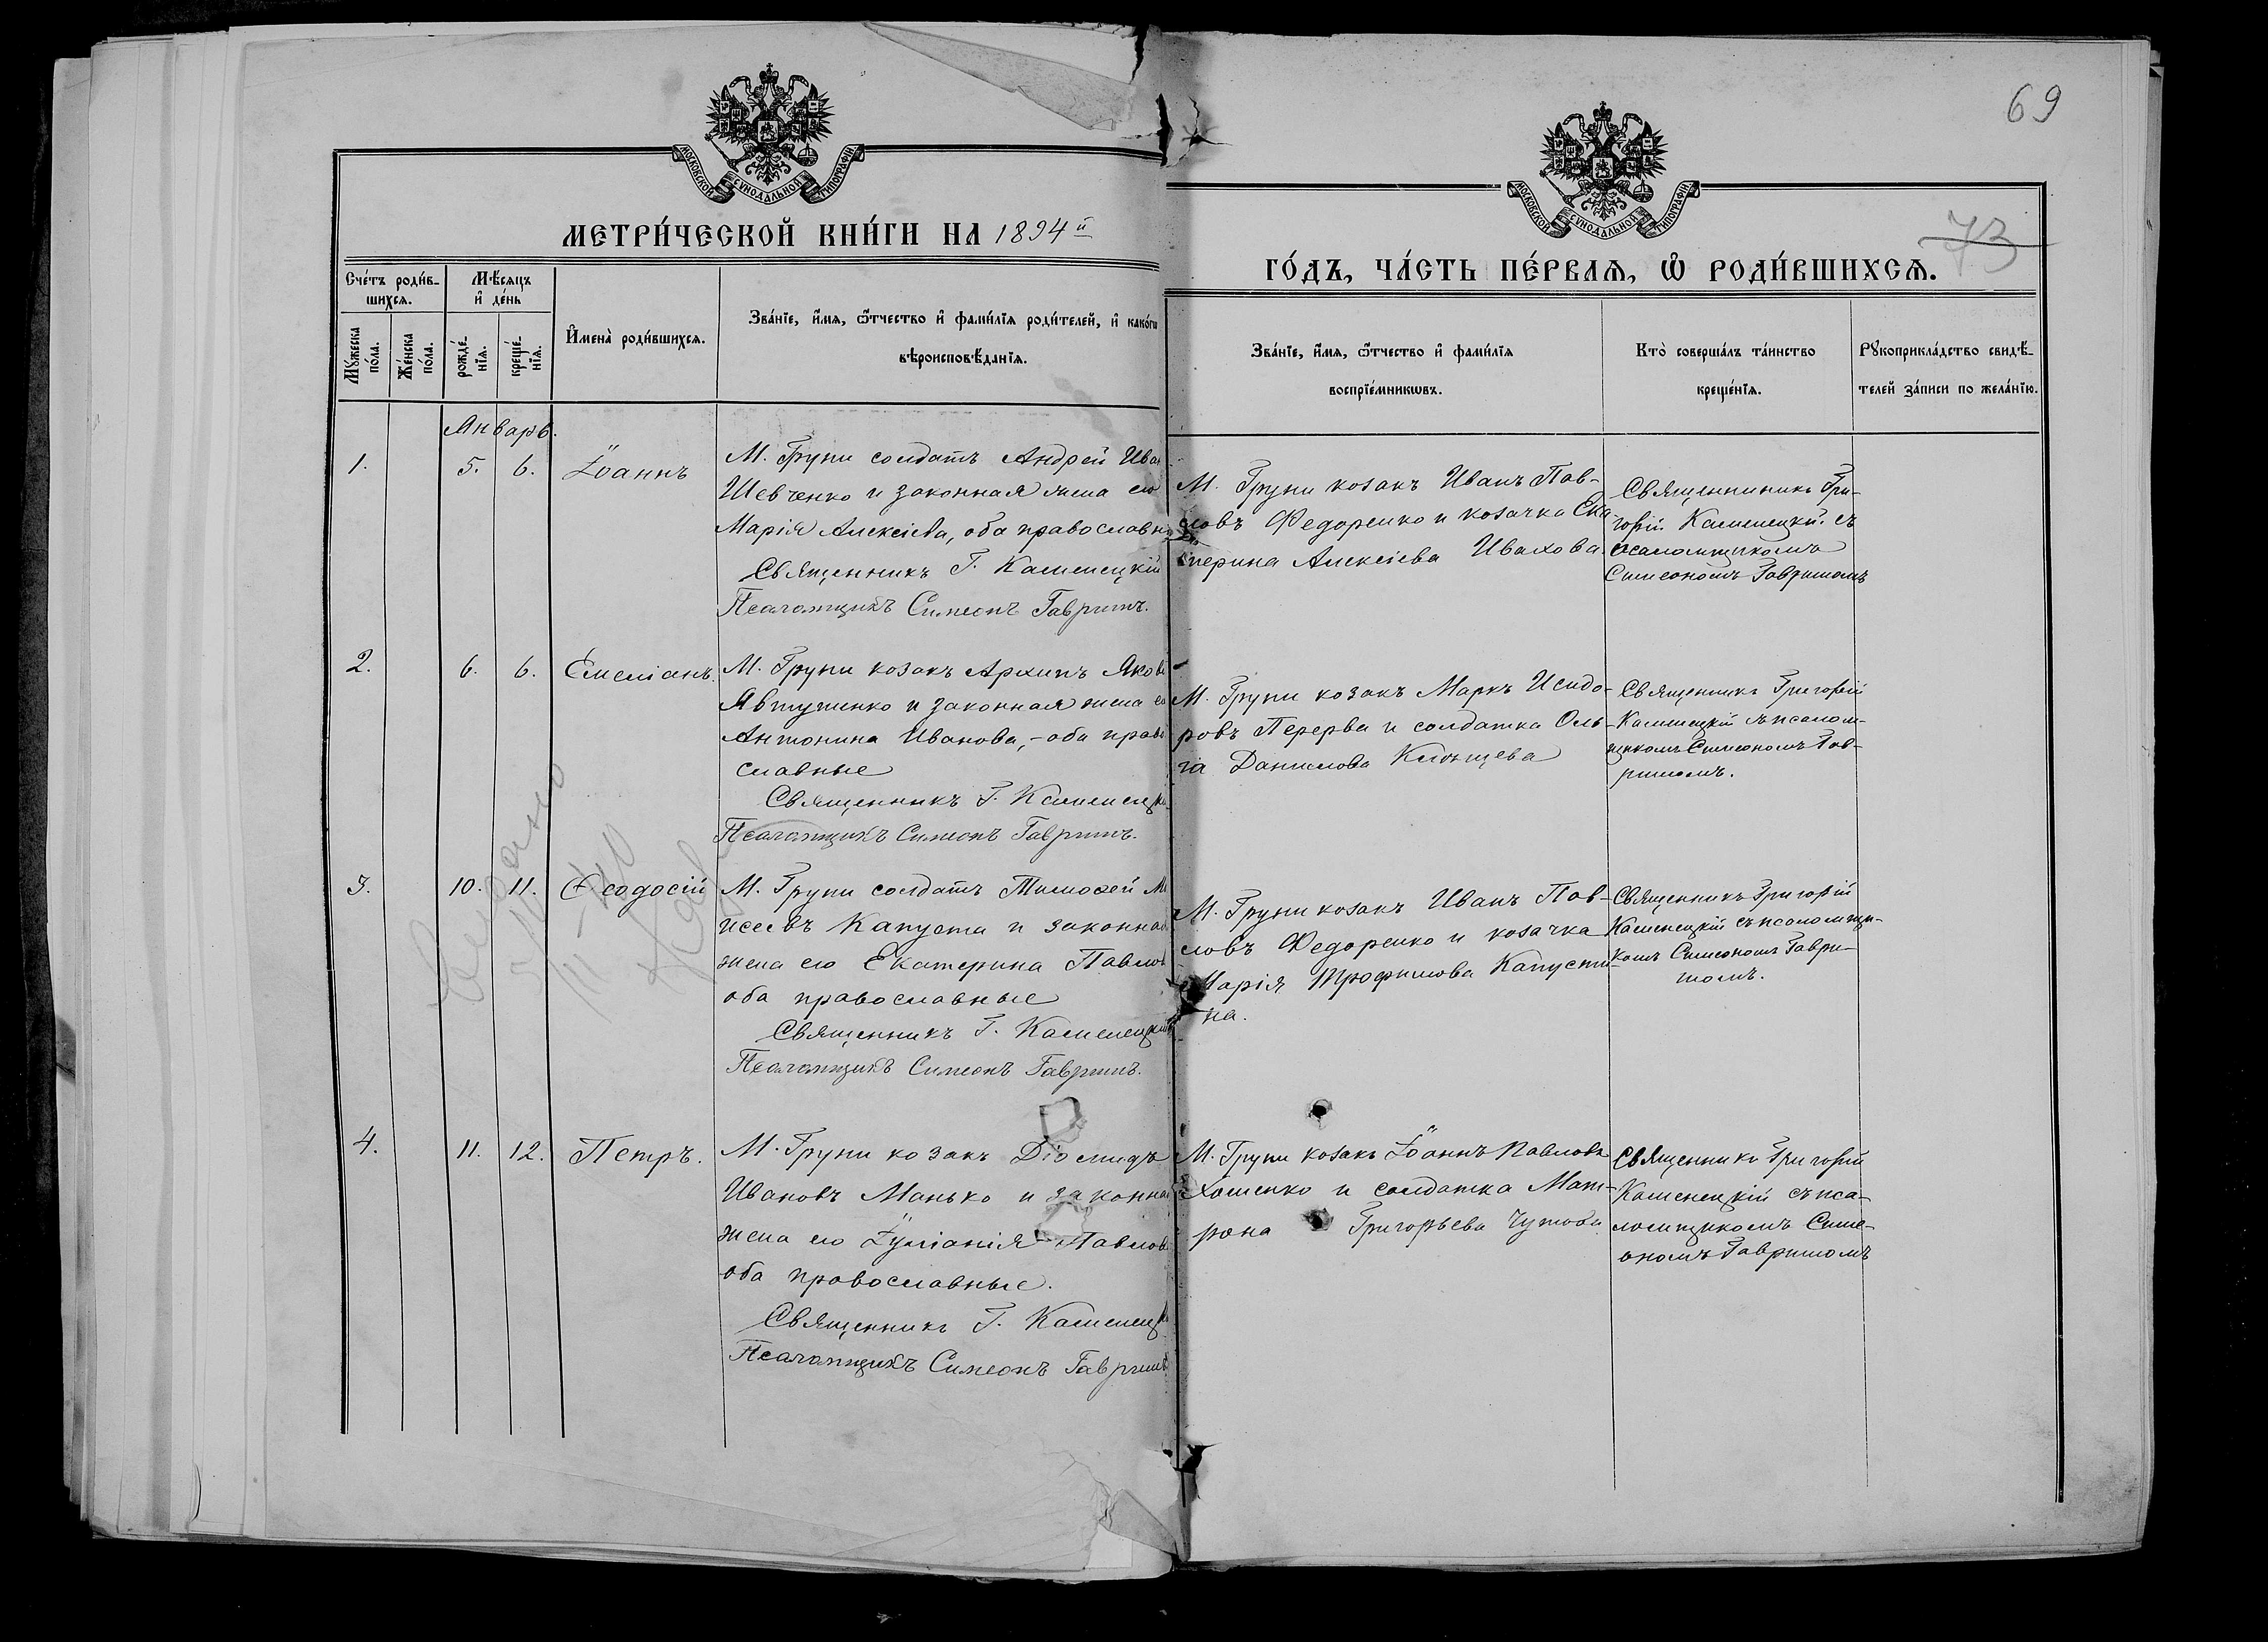 69
73
МОСКОВСКОЙ СѴНОДАЛЬНОЙ ТИПОГРАФІИ
МЕТРИ́ЧЕСКОЙ КНИ́ГИ НА 1894й
МОСКОВСКОЙ СѴНОДАЛЬНОЙ ТИПОГРАФІИ
ГО́ДЪ, ЧА́СТЬ ПЕ́РВАѦ, Ѡ҆ РОДИ́ВШИХСѦ.
Счétъ роди́в-
шихсѧ.
Мѣ́сѧцъ
и҆ де́нь
Мꙋ́жеска
по́ла.
Же́нска
по́ла.
рожде́-
нїѧ.
креще́-
нїѧ.
И҆мена̀ роди́вшихсѧ.
Зва́нїе, и҆́мѧ, ѻ҆́тчество и҆ фами́лїѧ роди́телей, и҆ како́гѡ
вѣроисповѣ́данїѧ.
Зва́нїе, и҆́мѧ, ѻ҆́тчество и҆ фами́лїѧ
воспрїе́мникѡвъ.
Кто̀ соверша́лъ та́инство
креще́нїѧ.
Рꙋкоприкла́дство свидѣ́-
телей за́писи по жела́нїю.
Январь.
1.
5.
6.
Іоаннъ
М. Груни солдатъ Андрей Ива
Шевченко и законная жена его
Марія Алексіева, оба православн
Священникъ Г. Каменецкій
Псаломщикъ Симеонъ Гавришъ.
М. Груни козакъ Иванъ Пав-
ловъ Федоренко и козачка Ека-
терина Алексіева Ивахова
Священникъ Гри-
горій Каменецкій съ
псаломщикомъ
Симеономъ Гавришомъ
2.
6.
6.
Емеліанъ.
М. Груни козакъ Архипъ Яков
Явтушенко и законная жена ег
Антонина Иванова, - оба право
славные
Священникъ Г. Каменецкі
Псаломщикъ Симеонъ Гавришъ.
М. Груни козакъ Маркъ Исидо-
ровъ Перерва и солдатка Оль-
га Данилова
Священникъ Григорій
Каменецкій съ псалом-
щикомъ Симеономъ Гав-
ришомъ.
3.
10.
11.
Ѳеодосій
М. Груни солдатъ Тимоѳей М
исеевъ Капуста и законная
жена его Екатерина Павлов
оба православные
Священникъ Г. Каменецкій
Псаломщикъ Симеонъ Гавришъ.
М. Груни козакъ Иванъ Пав-
ловъ Федоренко и козачка
Марія Трофимова Капусти-
на.
Священникъ Григорій
Каменецкій съ псаломщи-
комъ Симеономъ Гаври-
шомъ.
4.
11.
12.
Петръ.
М. Груни козакъ Діомидъ
Ивановъ Манько и законна
жена его Іуліанія Павлов
оба православные.
Священникъ Г. Каменецк
Псаломщикъ Симеонъ Гавришъ
М. Груни козакъ Іоаннъ Павловъ
Хоменко и солдатка Мат-
рона Григорьева
Священникъ Григорій
Каменецкій съ пса-
ломщикомъ Симе-
ономъ Гавришомъ